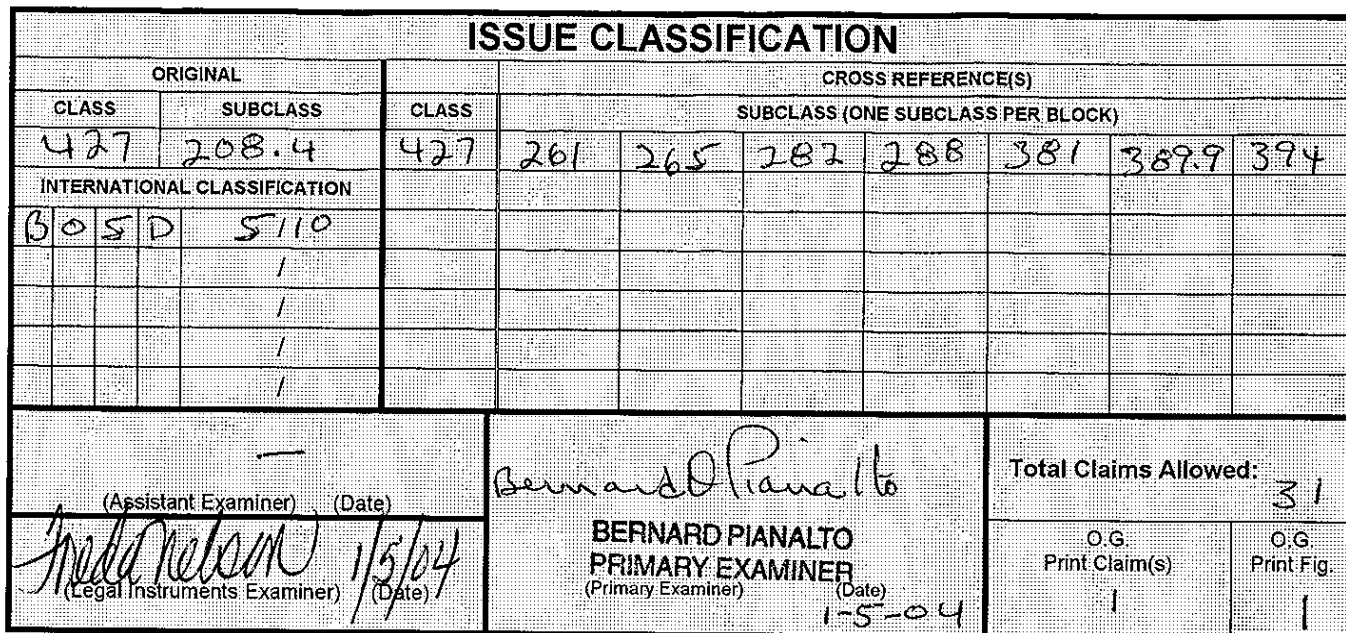 ISSUE CLASSIFICATION
ORIGINAL CROSS REFERENCE(S)
CLASS SUBCLASS CLASS SUBCLASS (ONE SUBCLASS PER BLOCK)
427 208.4 427 261 265 282 288 381 389.9 394
INTERNATIONAL CLASSIFICATION
B 0 5 D 5/10
/
/
/
/
—
(Assistant Examiner) (Date)
Freda Nelson 1/5/04
(Legal Instruments Examiner) (Date)
Bernard D Pianalto
BERNARD PIANALTO
PRIMARY EXAMINER
(Primary Examiner) (Date)
1-5-04
Total Claims Allowed:
31
O.G. Print Claim(s)
1
O.G. Print Fig.
1